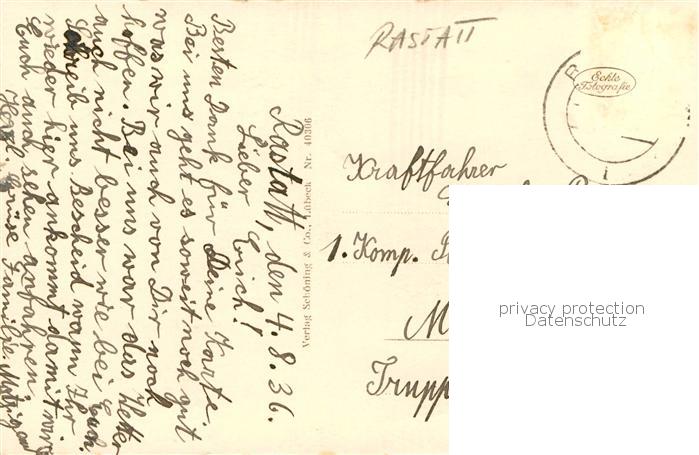 RASTATT
Echte
Fotografie
Rastatt, den 4.8.36.
Lieber Erich!
Besten Dank für Deine Karte.
Bei uns geht es soweit noch gut
was wir auch von Dir noch
hoffen. Bei uns war das Wetter
auch nicht besser wie bei Euch.
Schreib uns Bescheid wann Ihr
wieder hier ankommt damit wir
Euch auch sehen anfahren.
Herzl. Grüße Familie
Verlag Schöning & Co., Lübeck Nr. 40306
Kraftfahrer
1. Komp.
M
Trupp
privacy protection
Datenschutz